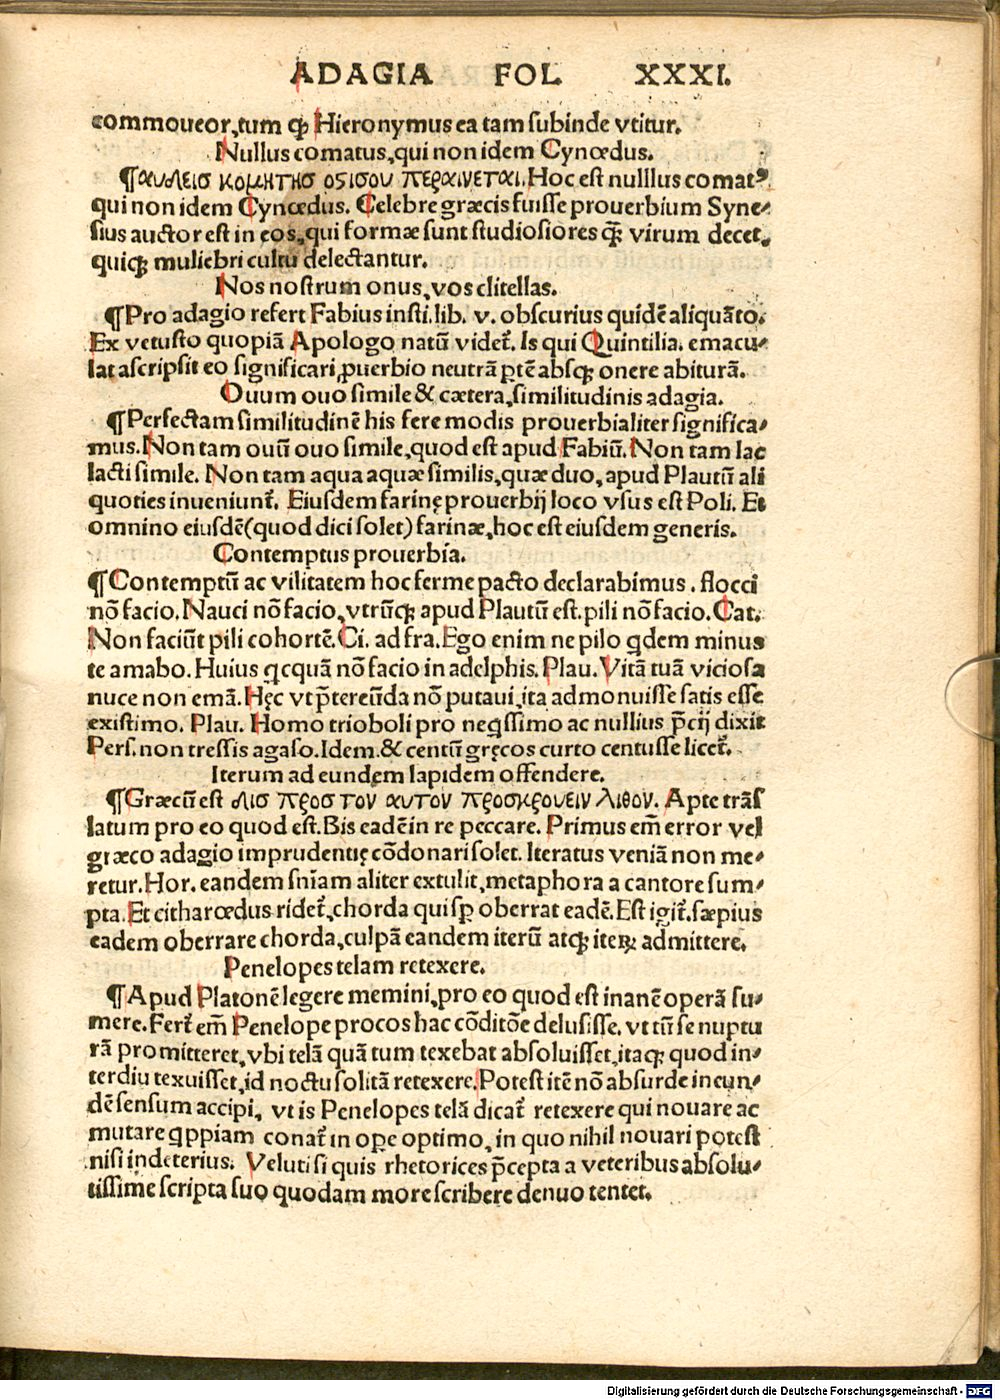 ADAGIA FOL XXXI.
commoueor,tum qꝫ Hieronymus ea tam ſubinde vtitur.
Nullus comatus,qui non idem Cynœdus.
¶αυλεισ κομητησ οσισου περαινεται.Hoc eſt nulllus comatꝰ
qui non idem Cynœdus. Celebre græcis fuiſſe prouerbium Syne⸗
ſius auctor eſt in eos,qui formæ ſunt ſtudioſiores q̃ꝫ virum decet,
quiqꝫ muliebri cultu delectantur.
Nos noſtrum onus,vos clitellas.
¶Pro adagio refert Fabius inſti.lib. v. obſcurius quidē aliquãto.
Ex vetuſto quopiã Apologo natũ videt᷑. Is qui Quintilia. emacu⸗
lat aſcripſit eo ſignificari,ꝓuerbio neutrã ꝑtē absqꝫ onere abiturã.
Ouum ouo ſimile & cætera,ſimilitudinis adagia.
¶Perfectam ſimilitudinē his fere modis prouerbialiter ſignifica⸗
mus.Non tam ouũ ouo ſimile,quod eſt apud Fabiũ.Non tam lac
lacti ſimile. Non tam aqua aquæ ſimilis,quæ duo,apud Plautũ ali
quoties inueniunt᷑. Eiuſdem farinę prouerbij loco vſus eſt Poli. Et
omnino eiuſdē(quod dici ſolet) farinæ,hoc eſt eiuſdem generis.
Contemptus prouerbia.
¶Contemptũ ac vilitatem hoc ferme pacto declarabimus . flocci
nō facio.Nauci nō facio,vtrũqꝫ apud Plautũ eſt.pili nō facio.Cat.
Non faciũt pili cohortē.Ci. ad fra.Ego enim ne pilo qdem minus
te amabo.Huius qcquã nō facio in adelphis.Plau.Vitã tuã vicioſa
nuce non emã.Hęc vt p̃tereũda nō putaui,ita admonuiſſe ſatis eſſe
exiſtimo. Plau. Homo trioboli pro neqſſimo ac nullius p̃cij dixit
Perſ.non treſſis agaſo.Idem.& centũ gręcos curto centuſſe licet᷑.
Iterum ad eundem lapidem offendere.
¶Græcũ eſt δισ προσ τον αυτον προσκρουειν λιθον. Apte trãſ
latum pro eo quod eſt.Bis eadē in re peccare. Primus em̃ error vel
græco adagio imprudentię cōdonari ſolet. Iteratus veniã non me⸗
retur.Hor.eandem ſniam aliter extulit,metaphora a cantore ſum⸗
pta.Et citharœdus ridet᷑,chorda qui ſꝑ oberrat eadē.Eſt igit᷑.ſæpius
eadem oberrare chorda,culpã eandem iterũ atqꝫ iteꝝ admittere.
Penelopes telam retexere.
¶Apud Platonē legere memini,pro eo quod eſt inanē operã ſu⸗
mere.Fert᷑ em̃ Penelope procos hac cōditōe deluſiſſe, vt tũ ſe nuptu
rã promitteret,vbi telã quã tum texebat abſoluiſſet,itaqꝫ quod in⸗
terdiu texuiſſet,id noctu ſolitã retexere.Poteſt itē nō abſurde in eun⸗
dē ſenſum accipi, vt is Penelopes telã dicat᷑ retexere qui nouare ac
mutare qppiam conat᷑ in oꝑe optimo,in quo nihil nouari poteſt
niſi in deterius. Veluti ſi quis rhetorices p̃cepta a veteribus abſolu⸗
tiſſime ſcripta ſuo quodam more ſcribere denuo tentet.
Digitalisierung gefördert durch die Deutsche Forschungsgemeinschaft - DFG